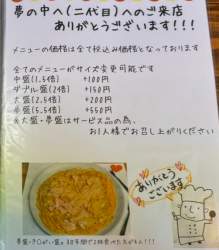 夢の中へ(二代目)へのご来店
ありがとうございます!!!
メニューの価格は全て税込み価格となっております
全てのメニューがサイズ変更可能です
中盛(1.5倍) +100円
ダブル盛(2倍) +150円
大盛(2.5倍) +200円
夢盛(5.5倍) +550円
※大盛・夢盛はサービス品の為、
お1人様でお召し上がりください
ありがとう
ございます